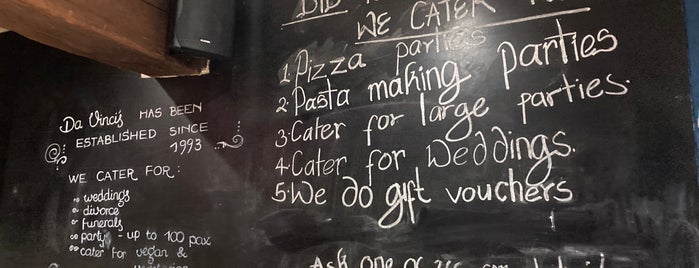 Da Vinci's HAS BEEN
ESTABLISHED SINCE
1993
WE CATER FOR:
weddings
divorce
funerals
party - up to 100 pax
cater for vegan &
DID
WE CATER
1. Pizza parties
2. Pasta making parties
3. Cater for large parties.
4. Cater for Weddings.
5. We do gift vouchers
Ask one of